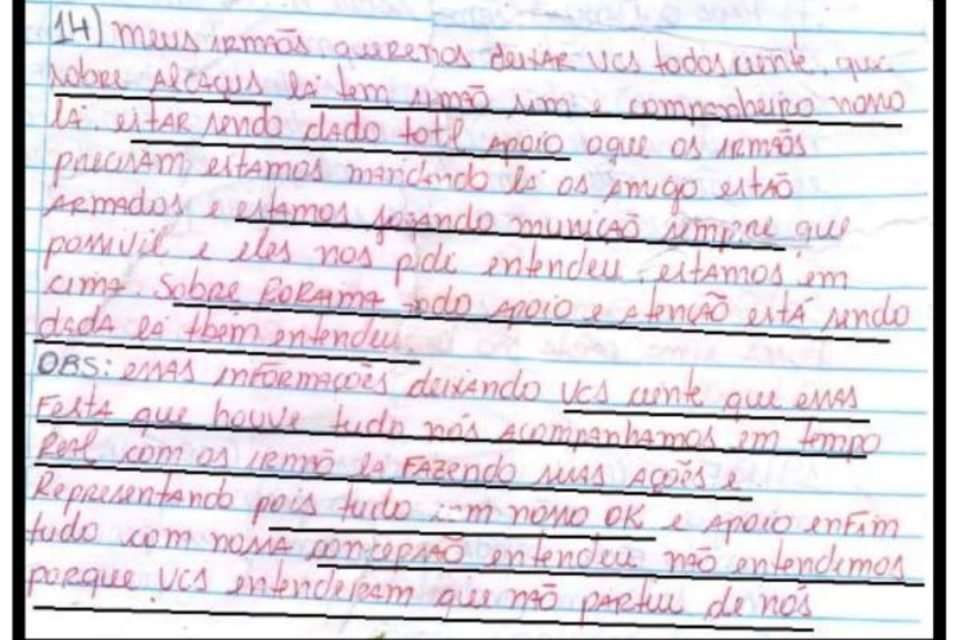 14) meus irmãos queremos deixar vcs todos ciente que
sobre Alcaçus lá tem irmão sim e companheiro nosso
lá. estar sendo dado totl apoio oque os irmãos
precisam estamos mandando lá os amigo estão
armados e estamos jogando munição sempre que
possivil e eles nos pidi entendeu. estamos em
cima. Sobre Roraima todo apoio e atenção está sendo
dada lá tbem entendeu.
OBS: essas informações deixando vcs ciente que essas
festa que houve tudo nós acompanhamos em tempo
Real com os irmão lá fazendo suas ações e
Representando pois tudo com nosso OK e apoio enfim
tudo com nossa concepsão entendeu não entendemos
porque vcs entenderam que não partiu de nós